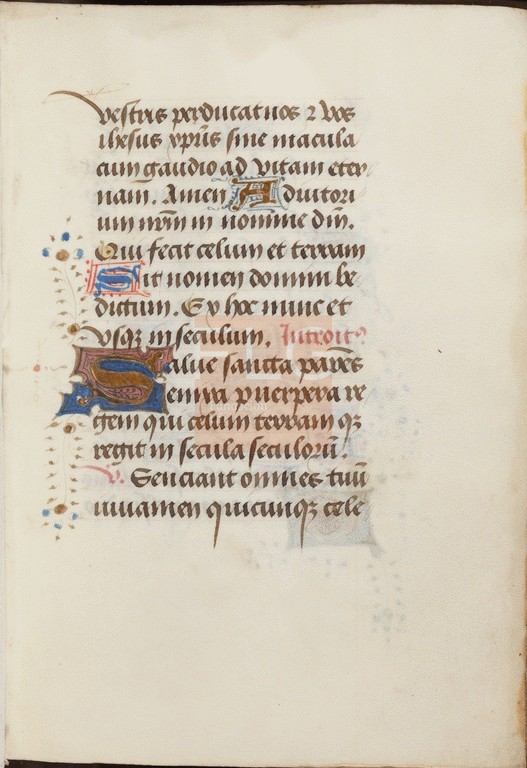 vestris perducat nos ⁊ vos
ihesus xp̄us sine macula
cum gaudio ad vitam eter
nam. Amen Adiutori
um nr̄m in nomine dn̄i.
Qui fecit celum et terram
Sit nomen domini be
dictum. Ex hoc nunc et
vsqꝫ in seculum. Introitꝰ
Salue sancta parēs
enixa puerpera re
gem qui celum terram qꝫ
regit in secula seculorū.
v. Senciant omnes tuū
iuuamen quicunqꝫ cele